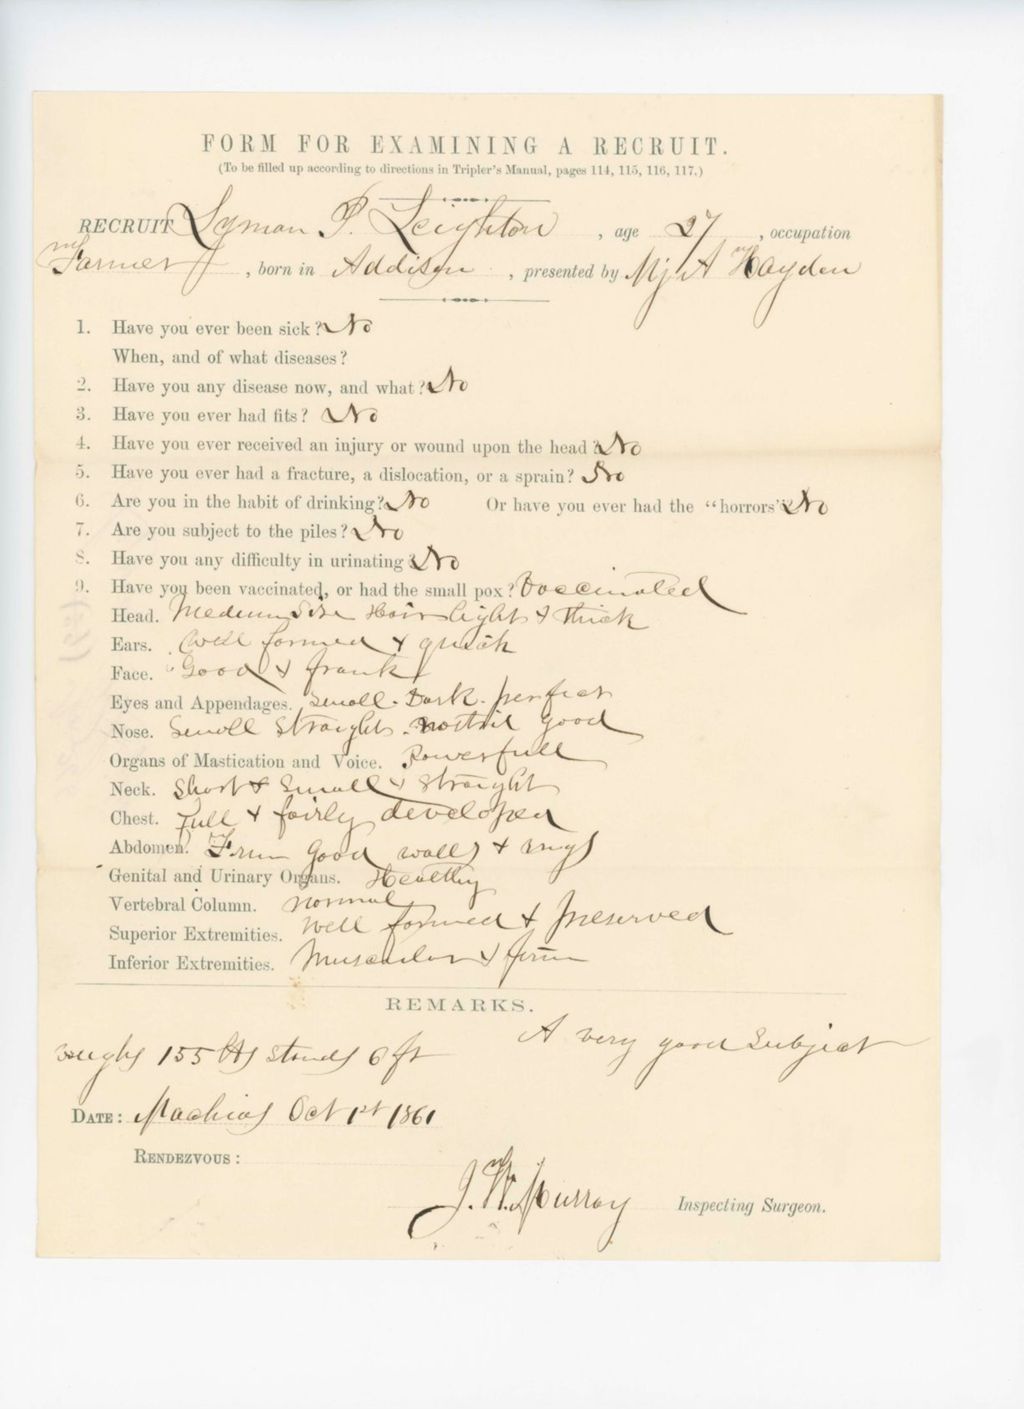 FORM FOR EXAMINING A RECRUIT.
(To be filled up according to directions in Tripler's Manual, pages 114, 115, 116, 117.)
RECRUIT Lyman P. Leighton, age 27, occupation
Farmer, born in Addison, presented by Mj A Hayden
1. Have you ever been sick? No
When, and of what diseases?
2. Have you any disease now, and what? No
3. Have you ever had fits? No
4. Have you ever received an injury or wound upon the head? No
5. Have you ever had a fracture, a dislocation, or a sprain? No
6. Are you in the habit of drinking? No Or have you ever had the "horrors"? No
7. Are you subject to the piles? No
8. Have you any difficulty in urinating? No
9. Have you been vaccinated, or had the small pox? Vaccinated
Head. Medium Size Hair light & thick
Ears. Well formed & quick
Face. Good & frank
Eyes and Appendages. Small. Dark. perfect
Nose. Small Straight. nostril good
Organs of Mastication and Voice. Powerfull
Neck. Short & Small & straight
Chest. Full & fairly developed
Abdomen. Firm good walls & rings
Genital and Urinary Organs. Healthy
Vertebral Column. normal
Superior Extremities. Well formed & preserved
Inferior Extremities. Muscular & firm
REMARKS.
A very good Subject
weighs 155 lbs stands 6 ft
DATE: Machias Oct 1st 1861
RENDEZVOUS:
J. W. Murray Inspecting Surgeon.